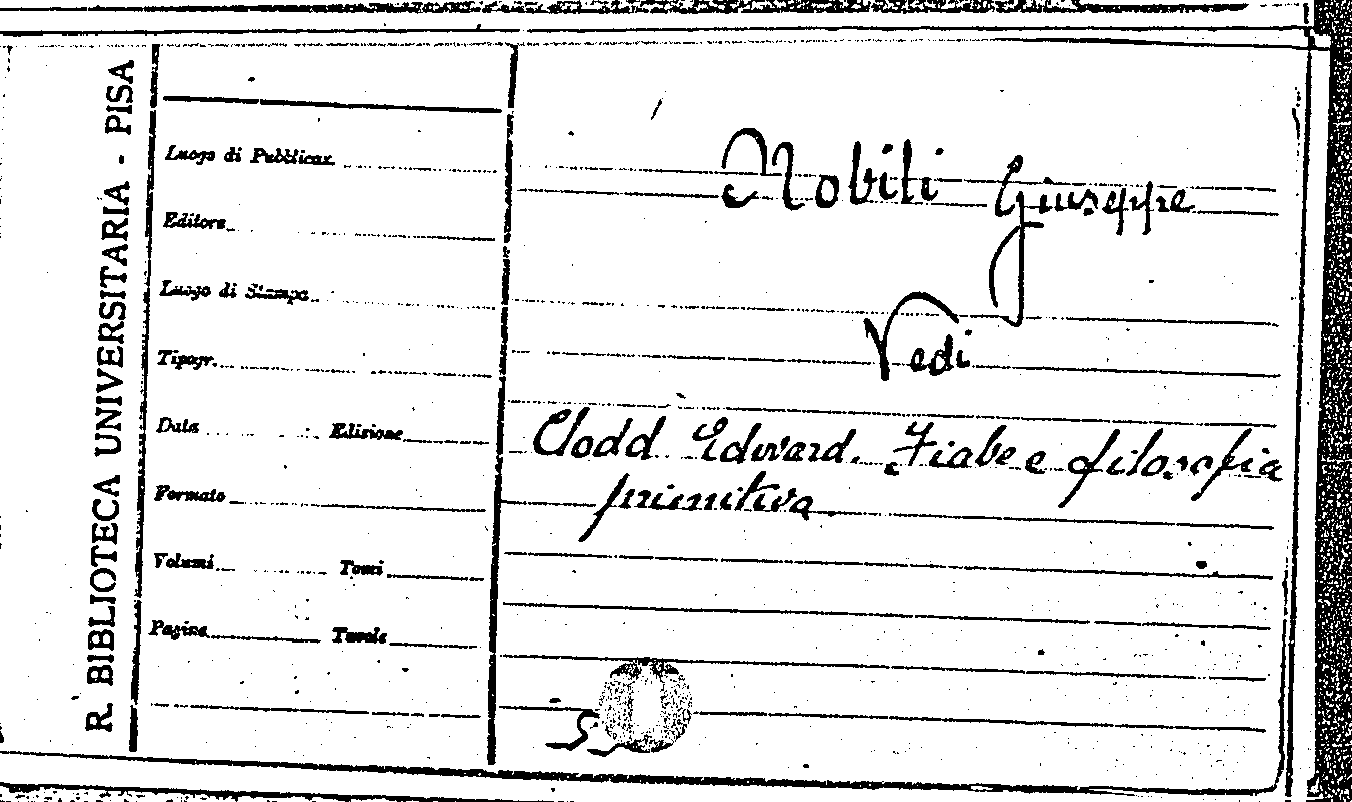 R. BIBLIOTECA UNIVERSITARIA - PISA
Luogo di Pubblicaz.
Editore
Luogo di Stampa
Tipogr.
Data Edizione
Formato
Volumi Tomi
Pagine Tavole
Nobili Giuseppe
Vedi
Clodd Edward. Fiabe e filosofia
primitiva.